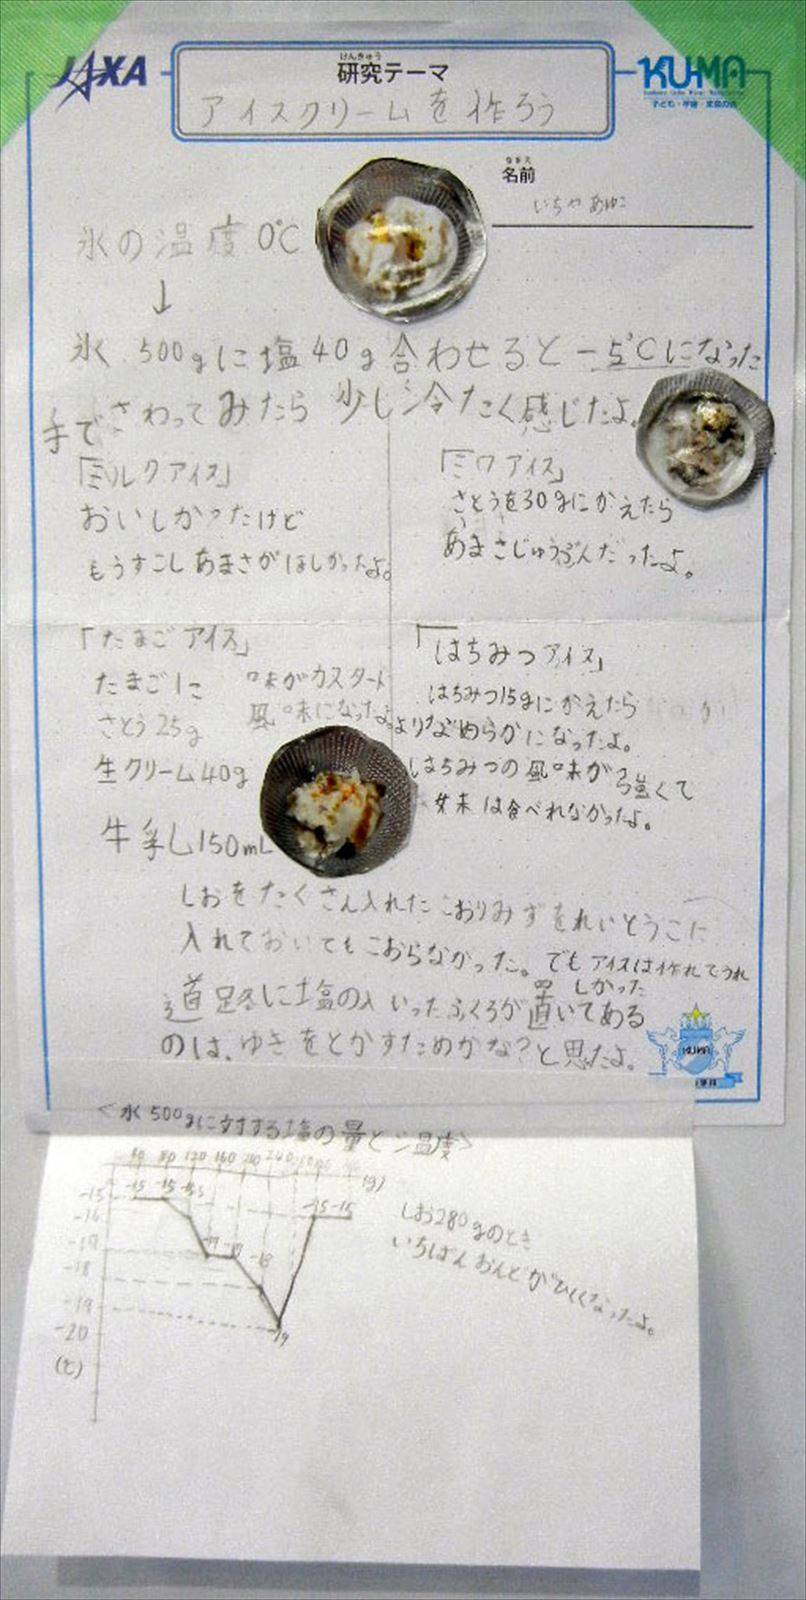 JAXA
けんきゅう
研究テーマ
KU-MA
子ども・宇宙・未来の会
アイスクリームを作ろう
なまえ
名前
氷の温度0℃
↓
氷500gに塩40g合わせると-5℃になった
手でさわってみたら少し冷たく感じたよ。
「ミルクアイス」
おいしかったけど
もうすこしあまさがほしかったよ。
「ミワアイス」
さとうを30gにかえたら
あまさじゅうぶんだったよ。
「たまごアイス」
たまごに
さとう25g
生クリーム40g
牛乳150mL
味がカスタード
風味になったよ。
「はちみつアイス」
はちみつ15gにかえたら
よりなめらかになったよ。
はちみつの風味が強くて
妹は食べれなかったよ。
しおをたくさん入れたこおりみずをれいとうこに
入れておいてもこおらなかった。でもアイスは作れてうれ
しかった
道路に塩の入いったふくろが置いてある
のは、ゆきをとかすためかな?と思たよ。
KUMA
<氷500gに対する塩の量と温度>
80 120 160 240
(g)
-15
-16
-19
-18
-19
-20
(℃)
-15 -15
-18
-19
-15 -15
しお280gのとき
いちばんおんどがひくくなったよ。